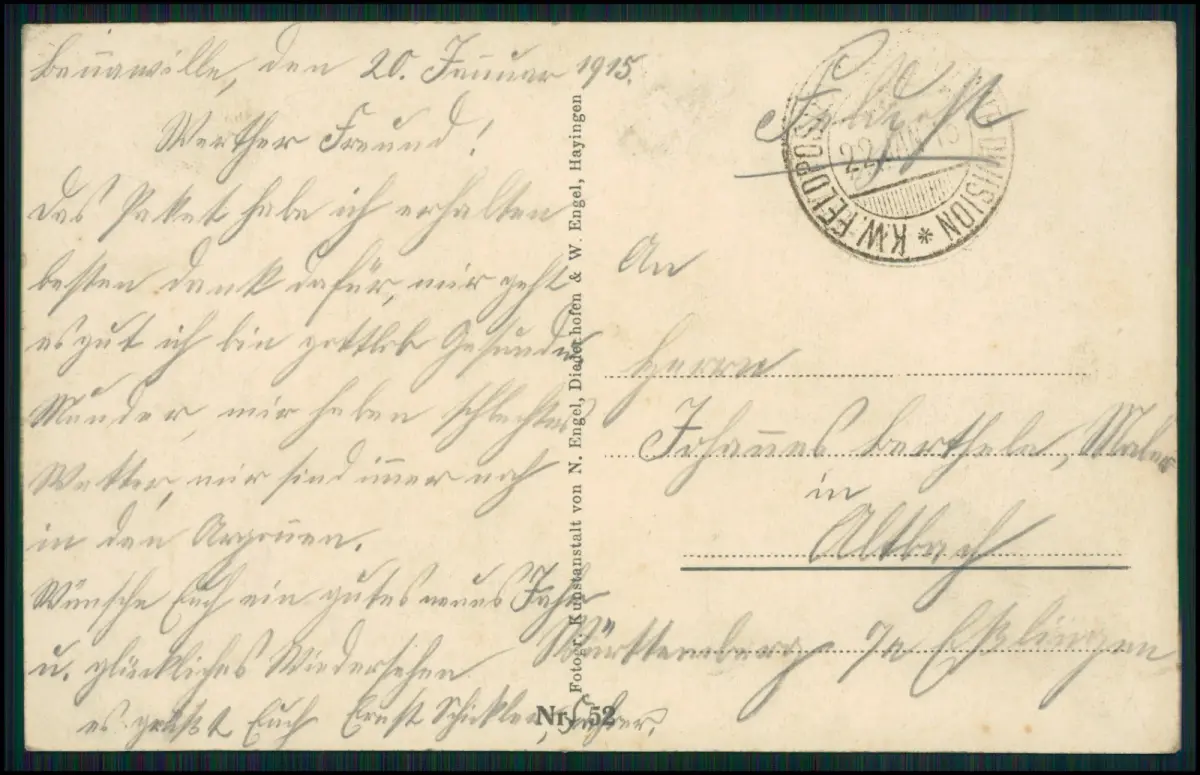 Bennawille, den 20. Januar 1915.
Werther Freund!
Das Paket habe ich erhalten
besten dank dafür, mir geht
es gut ich bin gottlob Gesund u.
Munder, mir haben schlechtes
Wetter, mir sind immer noch
in den Argonnen.
Wünsche Euch ein gutes neues Jahr
u. glückliches Wiedersehen
es grüßt Euch Ernst Schickler
Fotogr. Kunstanstalt von N. Engel, Diedenhofen & W. Engel, Hayingen
Nr. 52
Feldpost
K.W. FELDPOST DIVISION *
22 JAN 15
An
Herrn
Johannes Berthele, Maler
in
Altbach
Württemberg Eßlingen